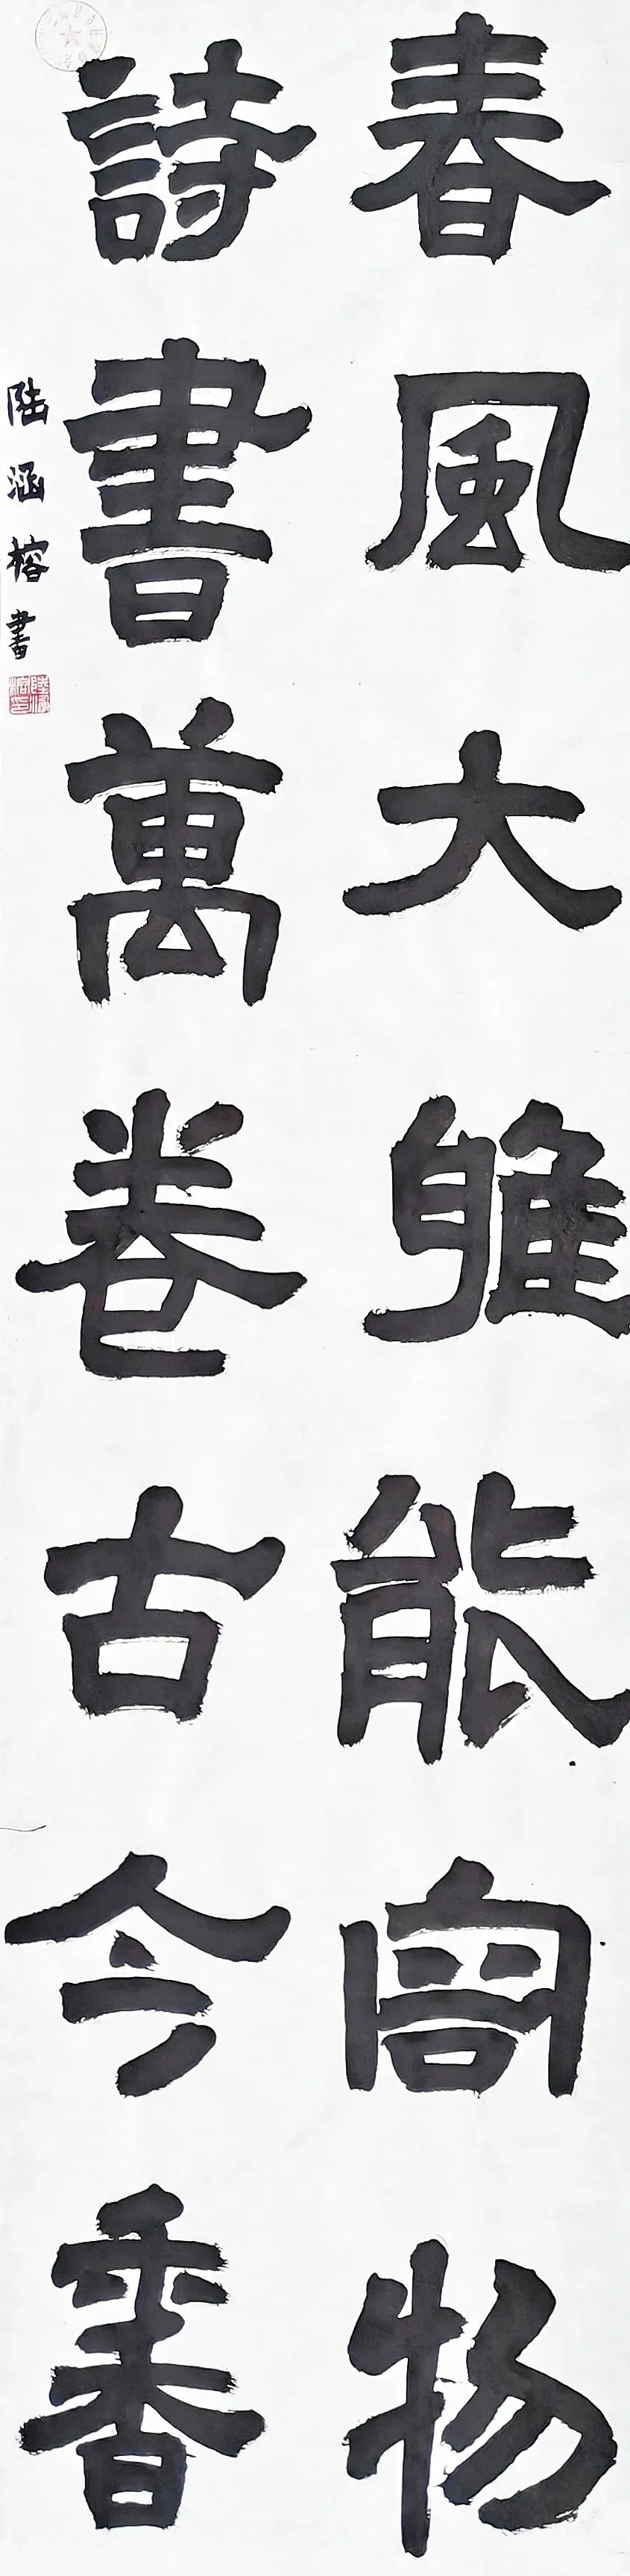 春風大雅能容物
詩書萬卷古今香
陆涵榕書